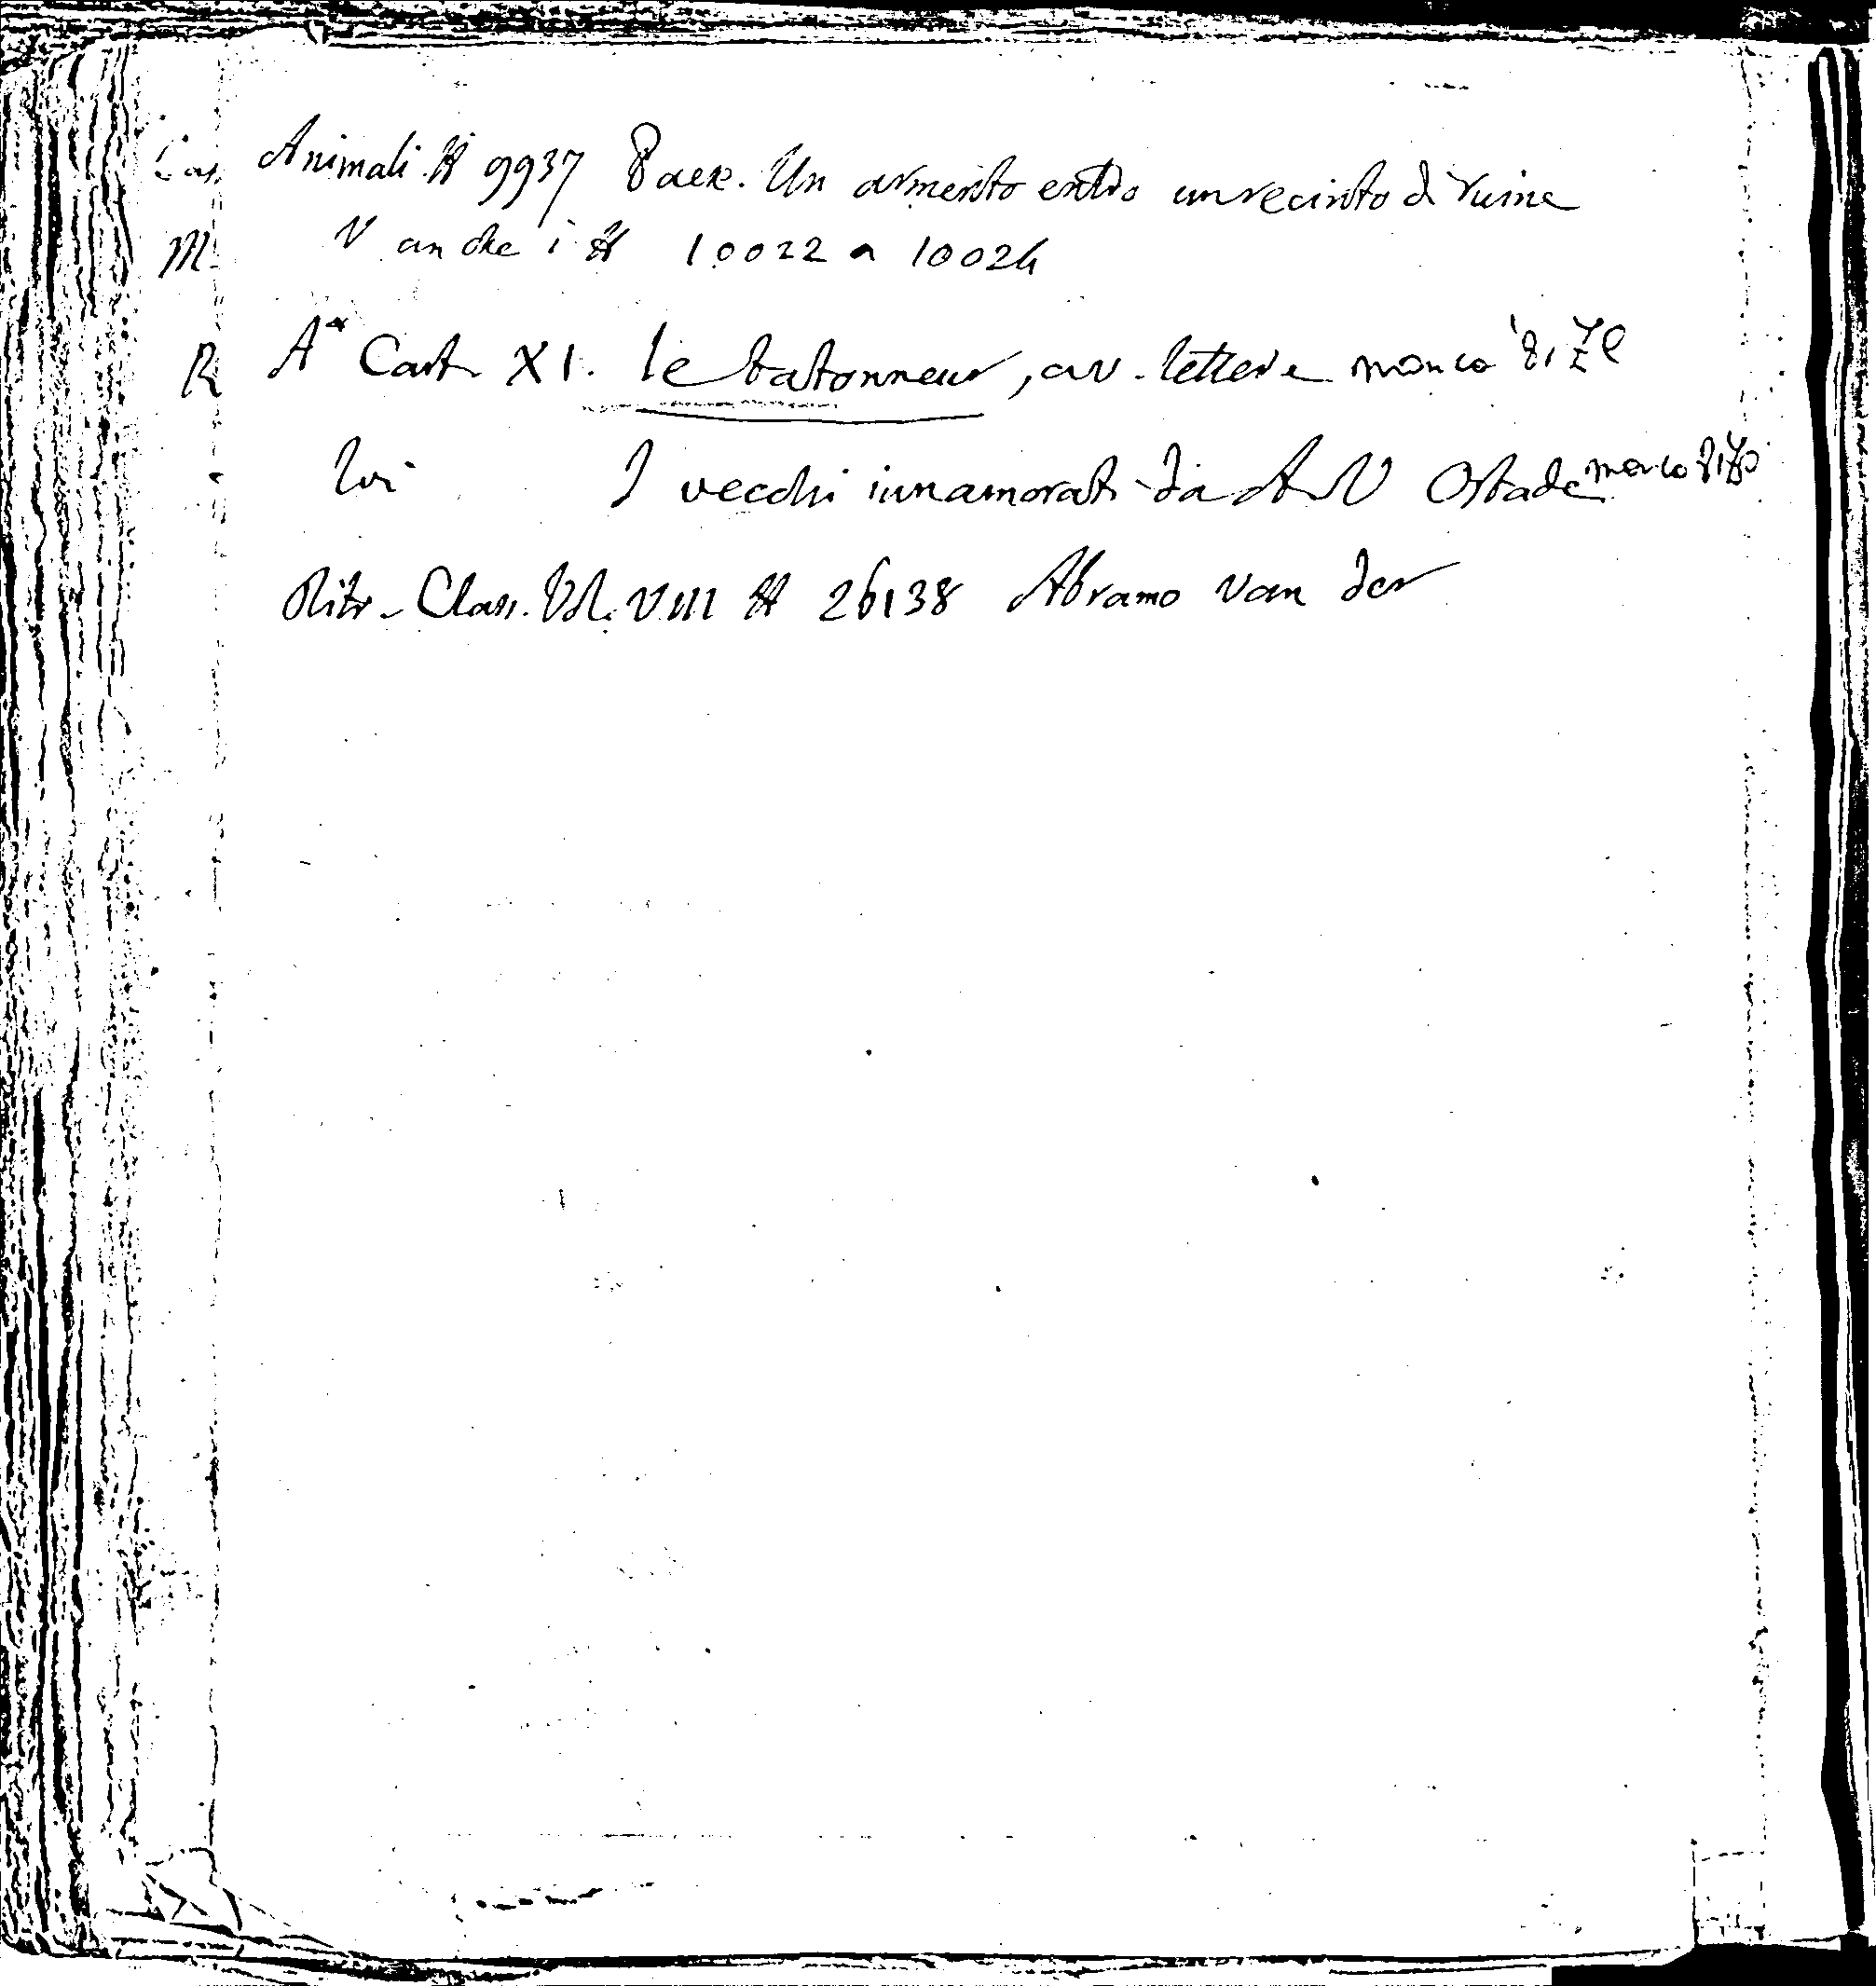 Animali. # 9937 Paese. Un armento entro un recinto di ruine
V anche i # 10022 a 10024
A* Cart XI. le batonneur, av. lettere manca
Ivi I vecchi innamorati da A V Ostade manca
Ritr. Class. Vol. VIII # 26138 Abramo van der